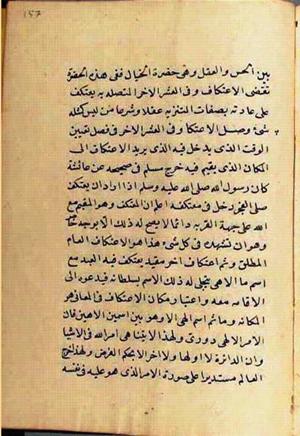 ١٥٧
بين الحس والعقل وهي حضرة الخيال ففي هذه الحضرة
تقضى الاعتكاف وفى العشر الاخر المتصله به يعتكف
على عادته بصفات التنزيه عقلا وشرعا من ليس كمثله
شئ وصل الاعتكاف فى العشر الاخر فى فصل تعيين
الوقت الذى يدخل فيه الذى يريد الاعتكاف الى
المكان الذى يقيم فيه خرج مسلم فى صحيحه عن عائشة
كان رسول الله صلى الله عليه وسلم اذا اراد ان يعتكف
صلى الفجر ودخل فى معتكفه اعلم ان المعتكف وهو المقيم مع
الله على جهة القربه دائما لا يصح له ذلك الا بوجه خاص
وهو ان تشهده فى كل شئ هذا هو الاعتكاف العام
المطلق وثم اعتكاف اخر مقيد يعتكف فيه العبد مع
اسم ما الاهى يتجلى له ذلك الاسم بسلطانه فيدعوه الى
الاقامه معه واعتبار مكان الاعتكاف فى المعانى هو
المكانه وما ثم اسم الهى الا وهو بين اسمين الاهيين فان
الامر الالهى دورى ولهذا لا يتناهى امر الله فى الاشيا
وان الدائرة لا اول لها ولا اخر الا بحكم الفرض ولهذا خرج
العالم مستديرا على صورة الامر الذى هو عليه فى نفسه